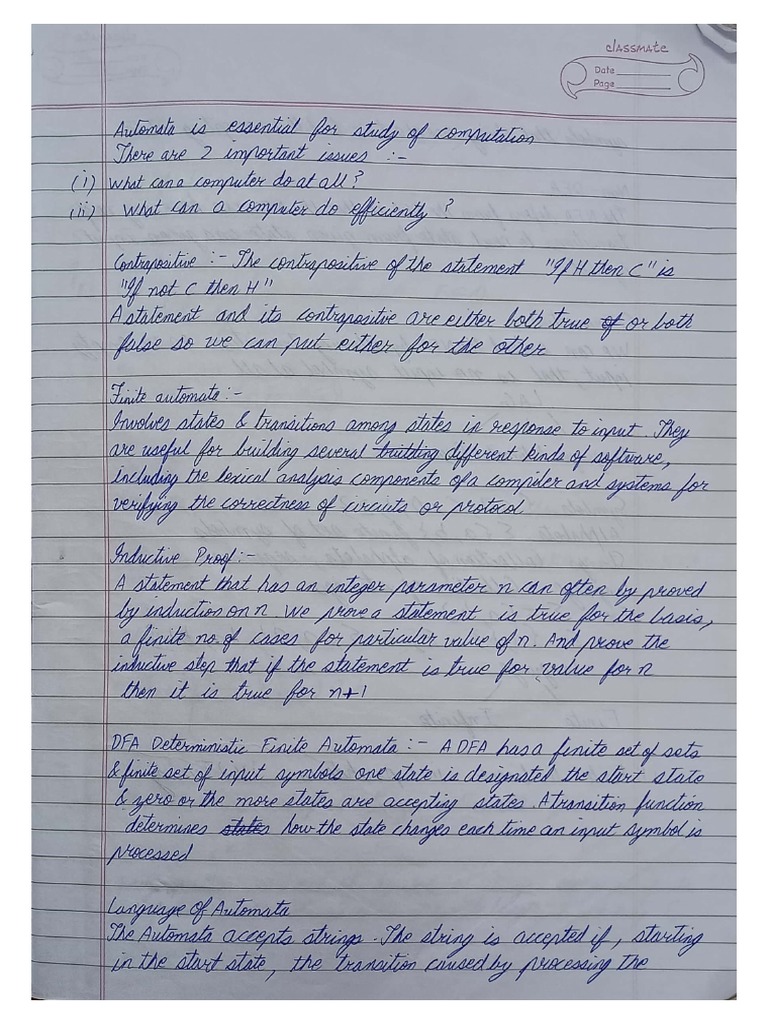 classmate
Date
Page
Automata is essential for study of computation
There are 2 important issues :-
(i) What can a computer do at all?
(ii) What can a computer do efficiently ?
Contrapositive :- The contrapositive of the statement "If H then C" is
"If not C then H"
A statement and its contrapositive are either both true of or both
false so we can put either for the other
Finite automata :-
Involves states & transitions among states in response to input. They
are useful for building several building different kinds of software,
including the lexical analysis components of a compiler and systems for
verifying the correctness of circuits or protocol
Inductive Proof :-
A statement that has an integer parameter n can often by proved
by induction on n. We prove a statement is true for the basis,
a finite no. of cases for particular value of n. And prove the
inductive step that if the statement is true for value for n
then it is true for n+1
DFA Deterministic Finite Automata :- A DFA has a finite set of sets
& finite set of input symbols one state is designated the start state
& zero or the more states are accepting states. A transition function
determines states how the state changes each time an input symbol is
processed
Language of Automata
The Automata accepts strings. The string is accepted if, starting
in the start state, the transition caused by processing the